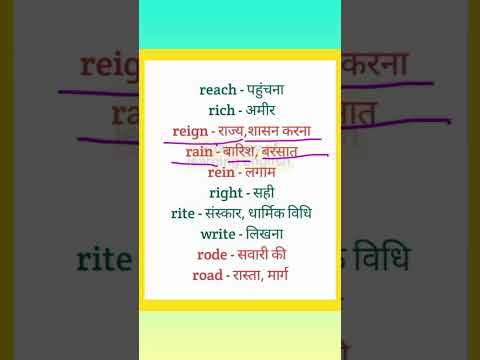 reach - पहुंचना
rich - अमीर
reign - राज्य,शासन करना
rain - बारिश, बरसात
rein - लगाम
right - सही
rite - संस्कार, धार्मिक विधि
write - लिखना
rode - सवारी की
road - रास्ता, मार्ग